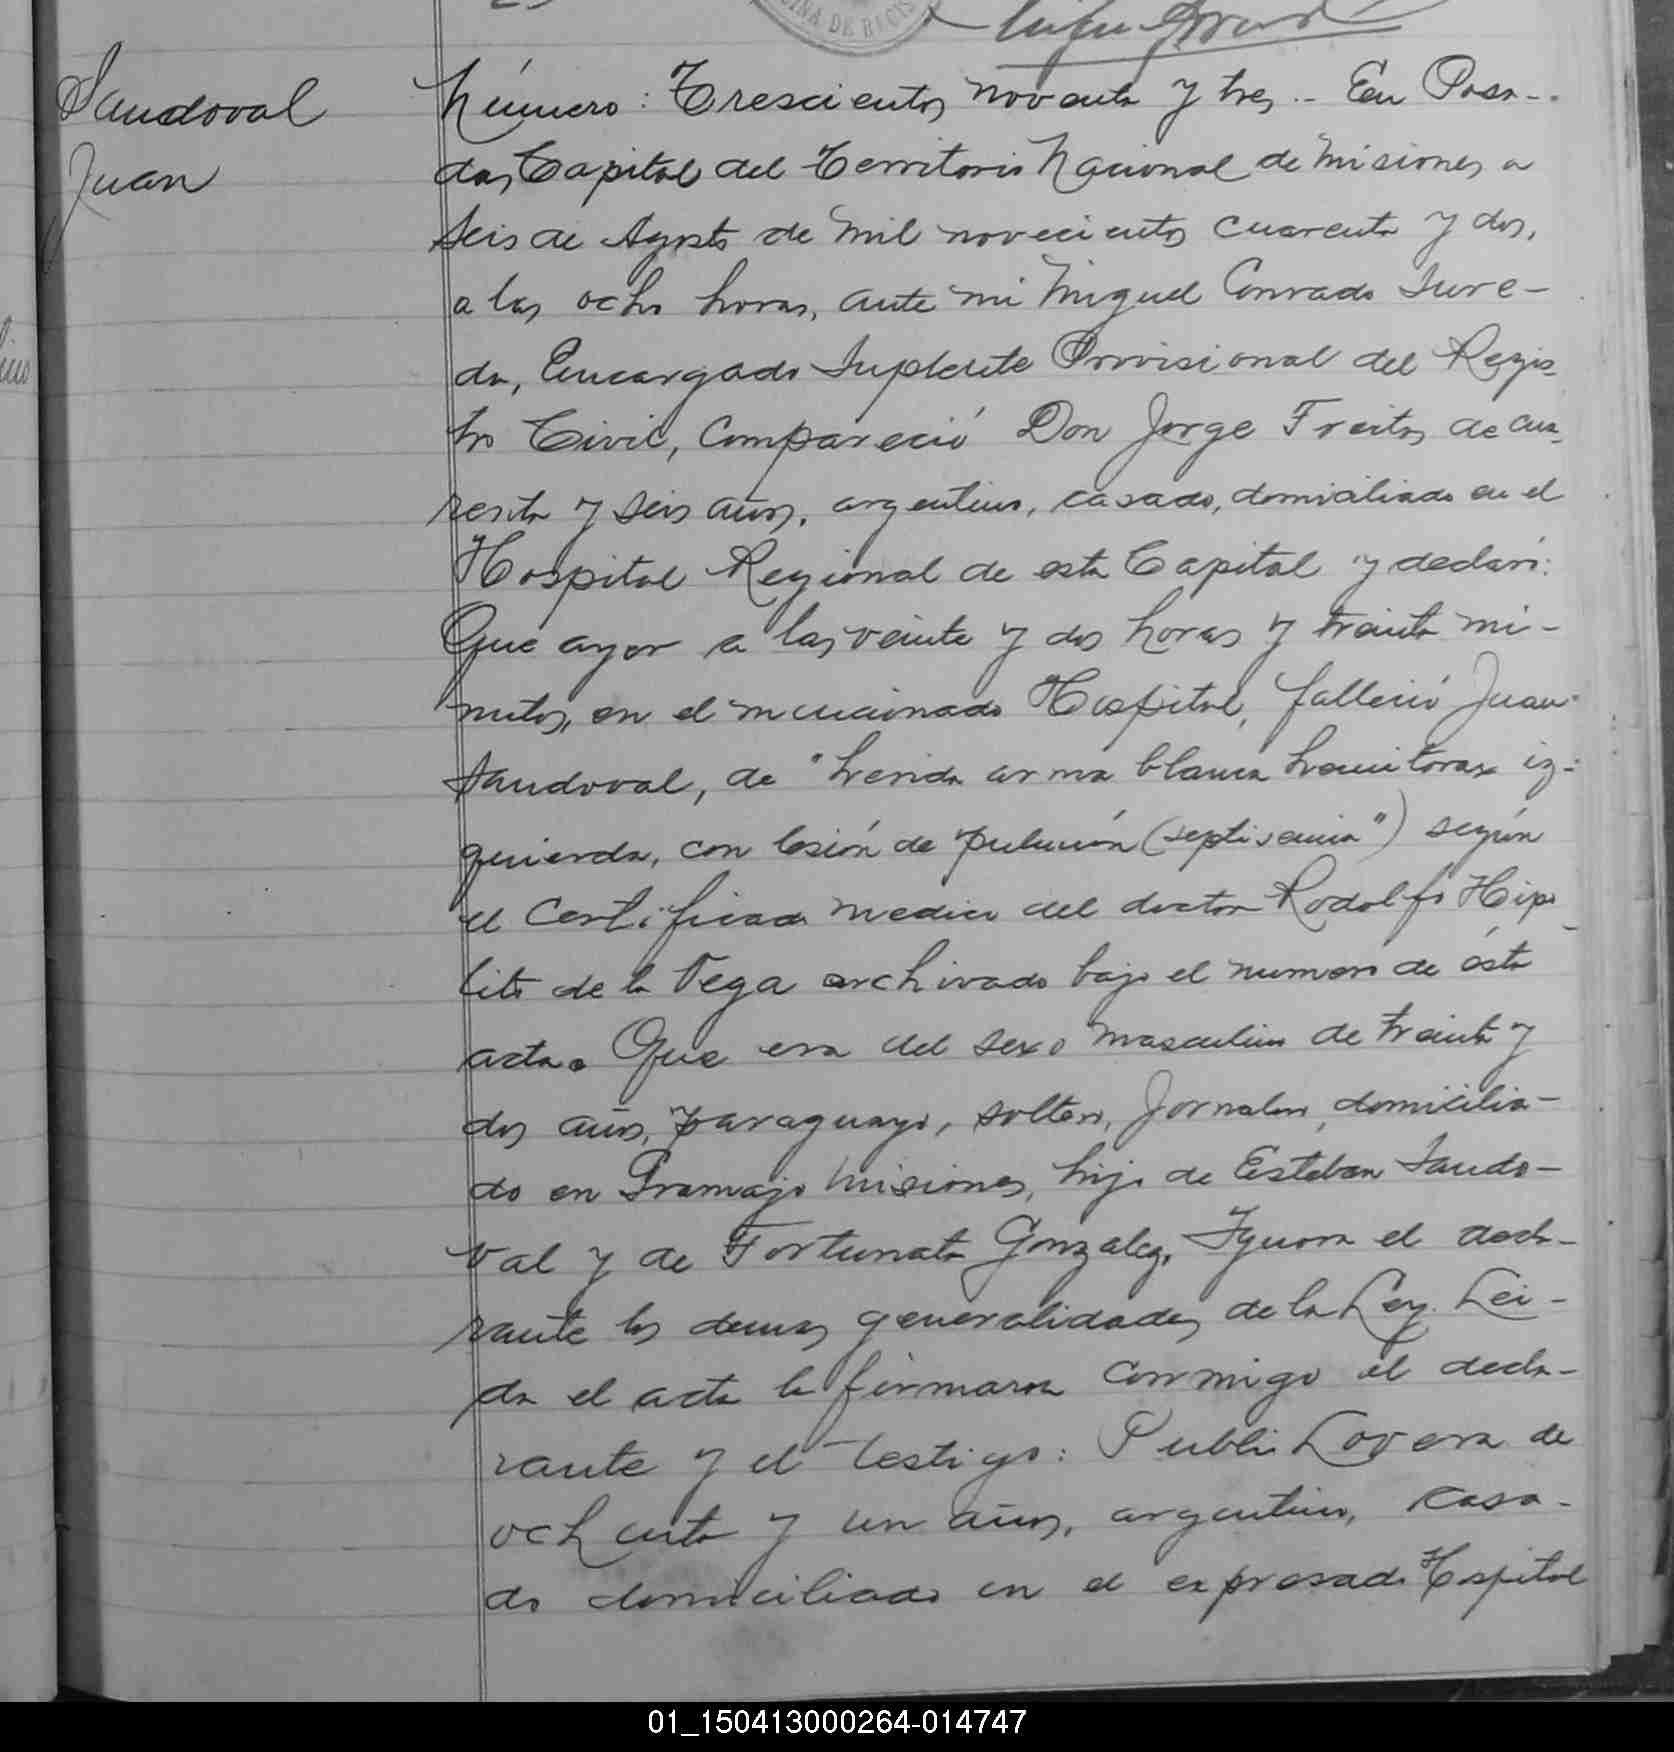 OFICINA DE REGIS
Sandoval
Juan
Número: Trescientos noventa y tres.- En Posa-
das, Capital del Territorio Nacional de Misiones a
seis de Agosto de mil novecientos cuarenta y dos,
a las ocho horas, ante mi Miguel Conrado Sure-
da, Encargado Suplente Provisional del Regis-
tro Civil, compareció Don Jorge Freitas de cua-
renta y seis años, argentino, casado, domiciliado en el
Hospital Regional de esta Capital y declaró:
Que ayer a las veinte y dos horas y treinta mi-
nutos, en el mencionado Hospital, falleció Juan
Sandoval, de "herida arma blanca hemitorax iz-
quierda, con lesión de pulmón (septisemia") según
el certificado medico del doctor Rodolfo Hipo-
lito de la Vega archivado bajo el numero de ésta
acta. Que era del sexo masculino de treinta y
dos años, paraguayo, soltero, jornalero, domicilia-
do en Gramajo Misiones, hijo de Esteban Sando-
val y de Fortunata Gonzalez. Ignora el decla-
rante las demas generalidades de la Ley. Lei-
da el acta la firmaron conmigo el decla-
rante y el testigo: Publio Lovera de
ochenta y un años, argentino, casa-
do domiciliado en el expresado Hospital
01_150413000264-014747